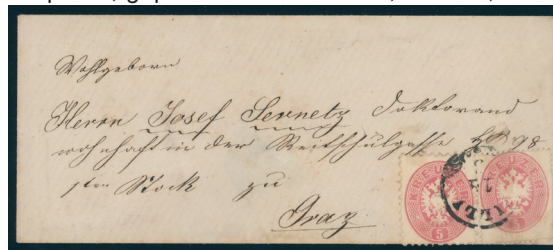 Wohlgeborn
Herrn Josef Sernetz Doktorand
wohnhaft in der Reitschulgasse 
1ten Stock zu
Graz
KREUZER
5
KREUZER